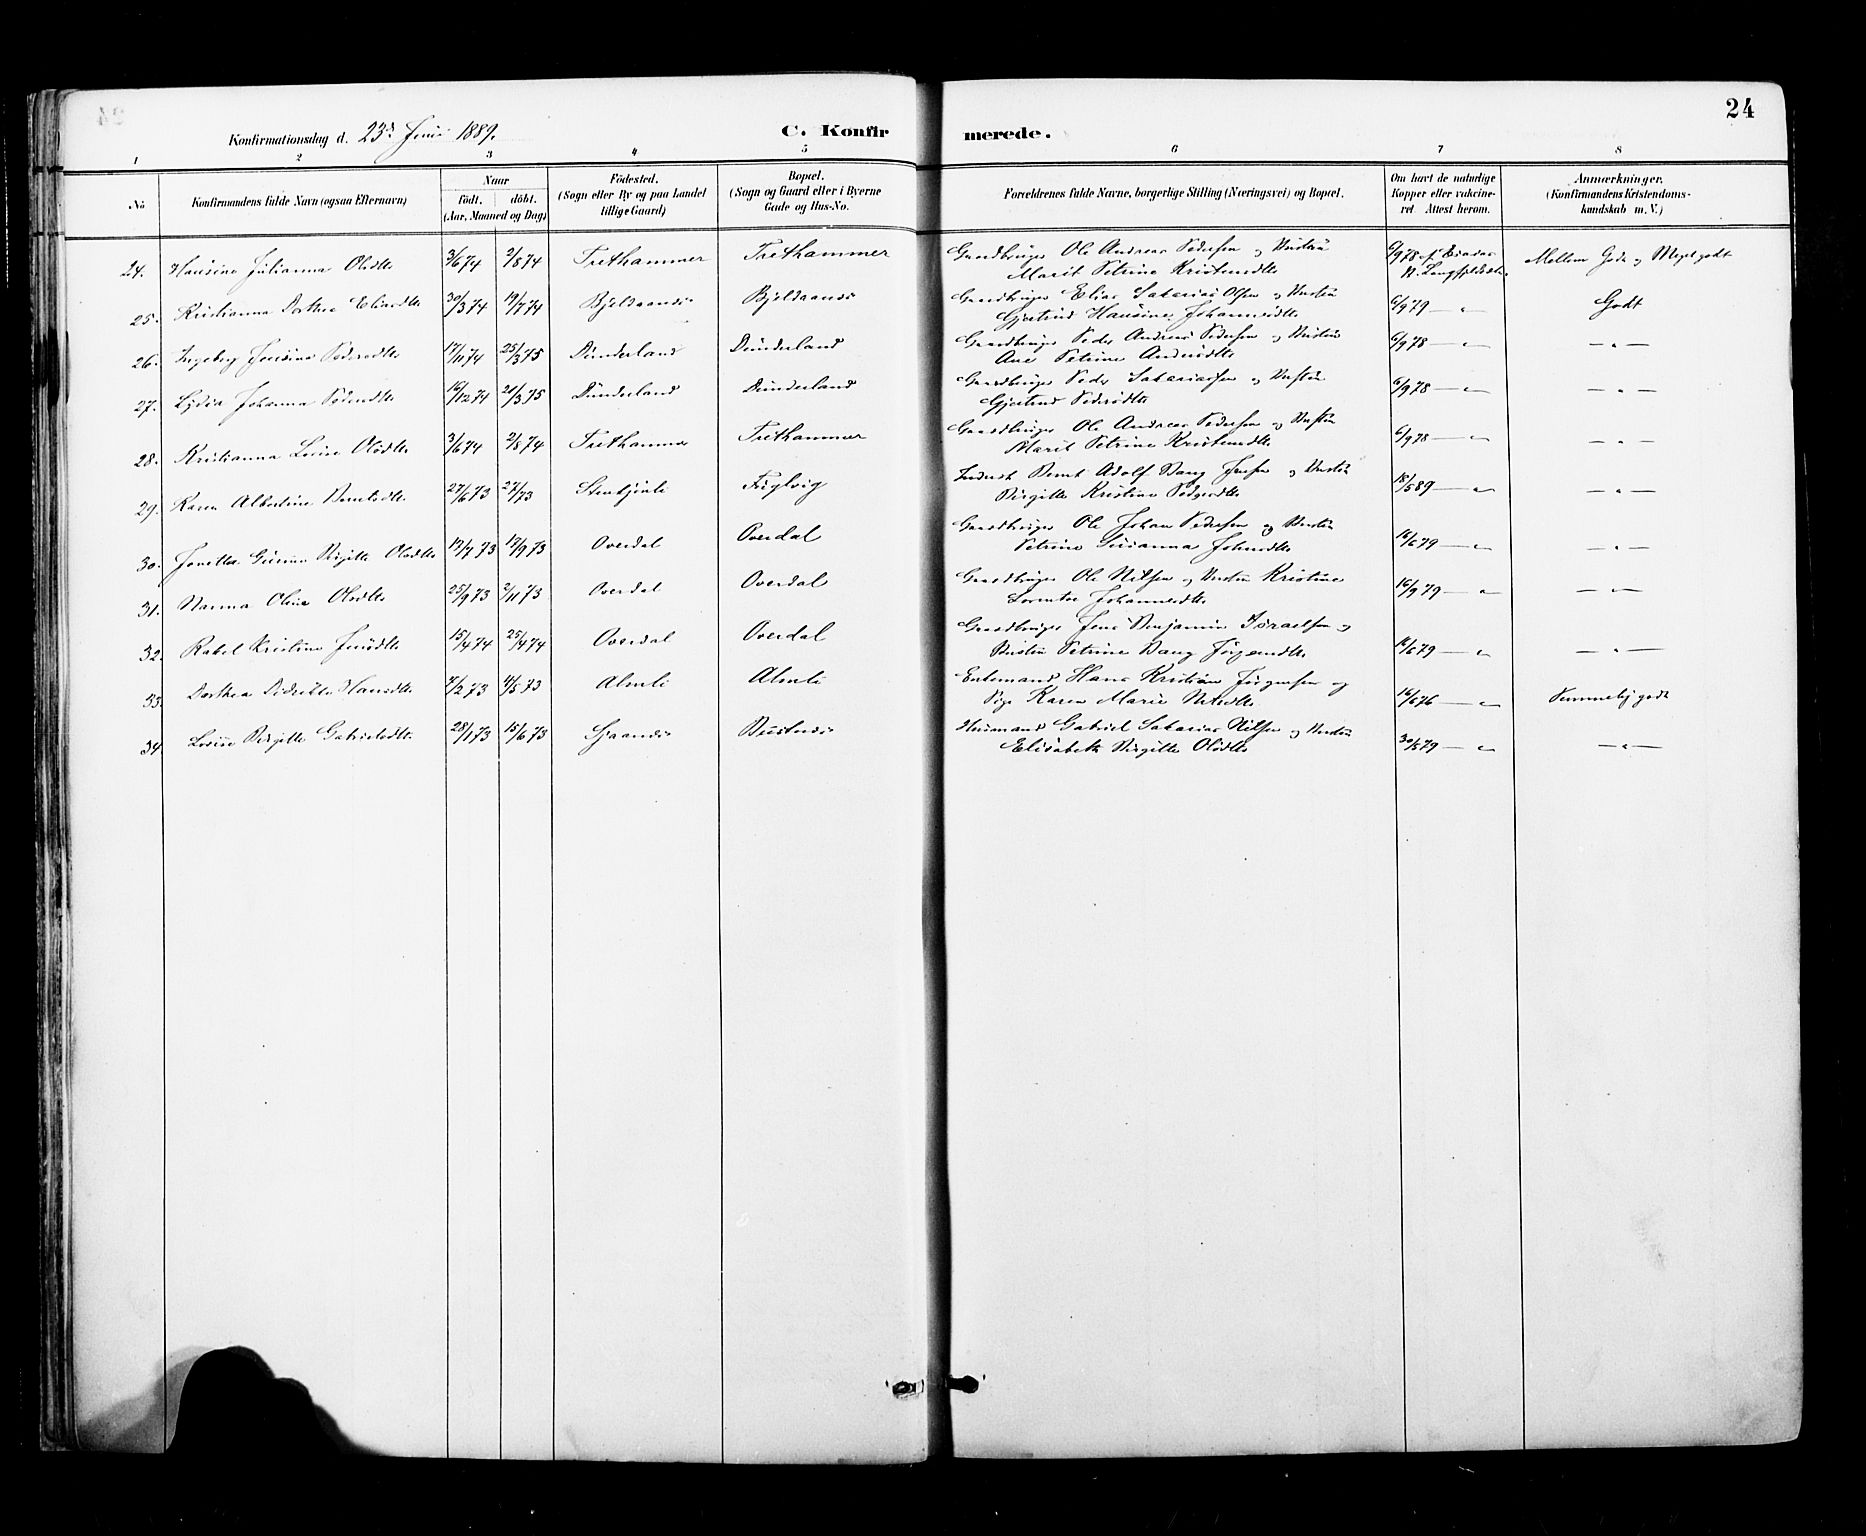 24
Konfirmationsdag d. 23de Juni 1889.
C. Konfirmerede.
1 2 3 4 5 6 7 8
No
Konfirmandens fulde Navn (ogsaa Efternavn)
Naar
födt. döbt.
(Aar, Maaned og Dag)
Födested.
(Sogn eller By og paa Landet
tillige Gaard)
Bopæl.
(Sogn og Gaard eller i Byerne
Gade og Hus-No.
Forældrenes fulde Navne, borgerlige Stilling (Næringsvei) og Bopæl.
Om havt de naturlige
Kopper eller vakcine-
ret. Attest herom.
Anmærkninger.
(Konfirmandens Kristendoms-
kundskab m. V.)
24. Hansine Julianna Olsdtr 3/6 74 2/8 74 Trethammer Trethammer Gaardbruger Ole Andreas Pedersen og Hustru 6/9 78 af Mellem Godt og Meget godt
Marit Petrine Kristensdtr
25. Kristianna Dorthea Eliasdtr 30/3 74 19/7 74 Bjeldaanes Bjeldaanes Gaardbruger Elias Sakarias Olsen og Hustru 6/9 79 — " Godt
Gjertrud Hansine Johannesdtr
26. Ingeborg Jensine Pedersdtr 17/11 74 25/3 75 Dunderland Dunderland Gaardbruger Peder Andreas Pedersen og Hustru 6/9 78 — " — " —
Ane Petrine Andersdtr
27. Lydia Johanna Pedersdtr 16/12 74 21/3 75 Dunderland Dunderland Gaardbruger Peder Sakariasen og Hustru 6/9 78 — " — " —
Gjertrud Pedersdtr
28. Kristianna Lovise Olsdtr 3/6 74 2/8 74 Trethammer Trethammer Gaardbruger Ole Andreas Pedersen og Hustru 6/9 78 — " — " —
Marit Petrine Kristensdtr
29. Karen Albertine Berntsdtr 27/6 73 Stenbjerli Fuglvig Inderst Bernt Adolf Bang Jensen og Hustru 18/5 89 — " — " —
Birgitte Kristine Pedersdtr
30. Birgitte Olsdtr 17/7 73 17/9 73 Overdal Overdal Gaardbruger Ole Johan Pedersen og Hustru 16/6 79 — " — " —
Petrine Susanna Johnsdtr
31. Nanna Olina Olsdtr 25/9 73 2/11 73 Overdal Overdal Gaardbruger Ole Nilsen og Hustru Kristine 16/9 79 — " — " —
Lorentse Johannesdtr
32. Rakel Kristine Jensdtr 15/4 74 25/4 74 Overdal Overdal Gaardbruger Jens Benjamin Israelsen og 16/6 79 — " — " —
Hustru Petrine Bang Jörgensdtr
33. Dorthea Didrikke Hansdtr 4/2 73 4/5 73 Almli Almli Enkemand Hans Kristian Jörgensen og 16/6 76 — " Temmelig godt
Pige Karen Marie Nilsdtr
34. Lovise Birgitte Gabrielsdtr 28/1 73 15/6 73 Sjaanes Bustnes Husmand Gabriel Sakarias Nilsen og Hustru 30/5 79 — " — " —
Elisabeth Birgitte Olsdtr